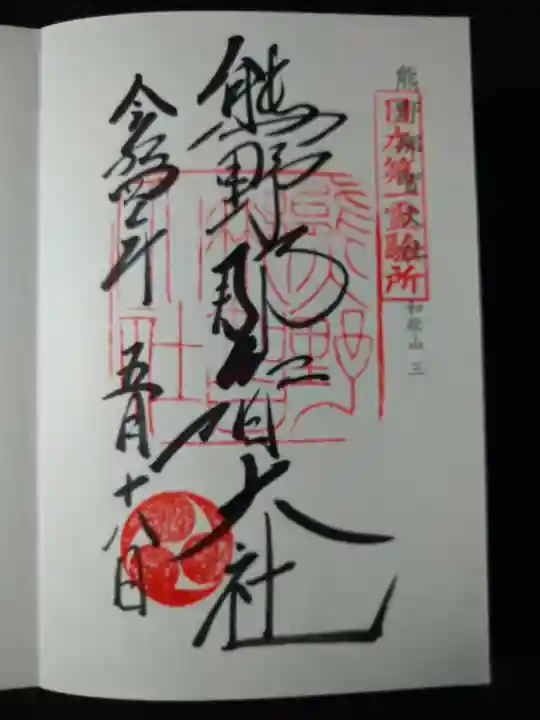 熊野那智大社
和歌山 三
日本第一霊験所
熊野那智大社
令和四年 五月十八日